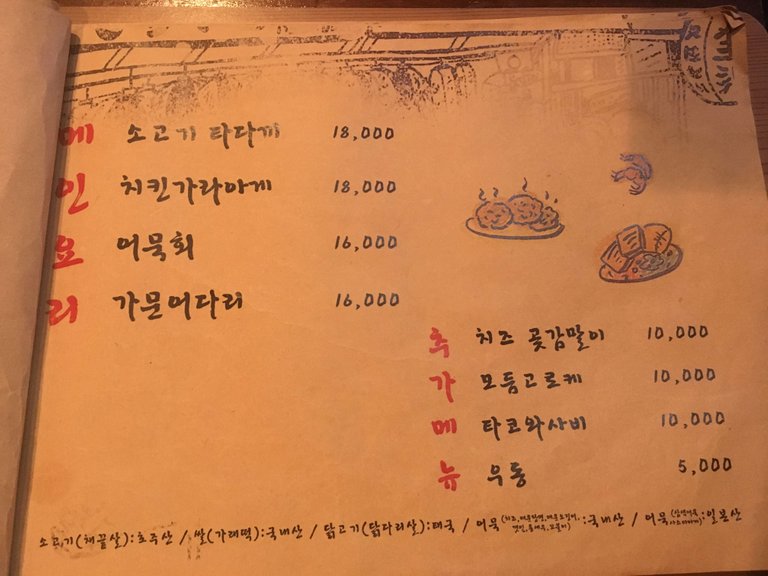 메인요리
소고기 타다끼 18,000
치킨가라아게 18,000
어묵회 16,000
가문어다리 16,000
추가메뉴
치즈 곶감말이 10,000
모듬고로케 10,000
타코와사비 10,000
우동 5,000
소고기(채끝살):호주산 / 쌀(가래떡):국내산 / 닭고기(닭다리살):태국 / 어묵:국내산 / 어묵:일본산